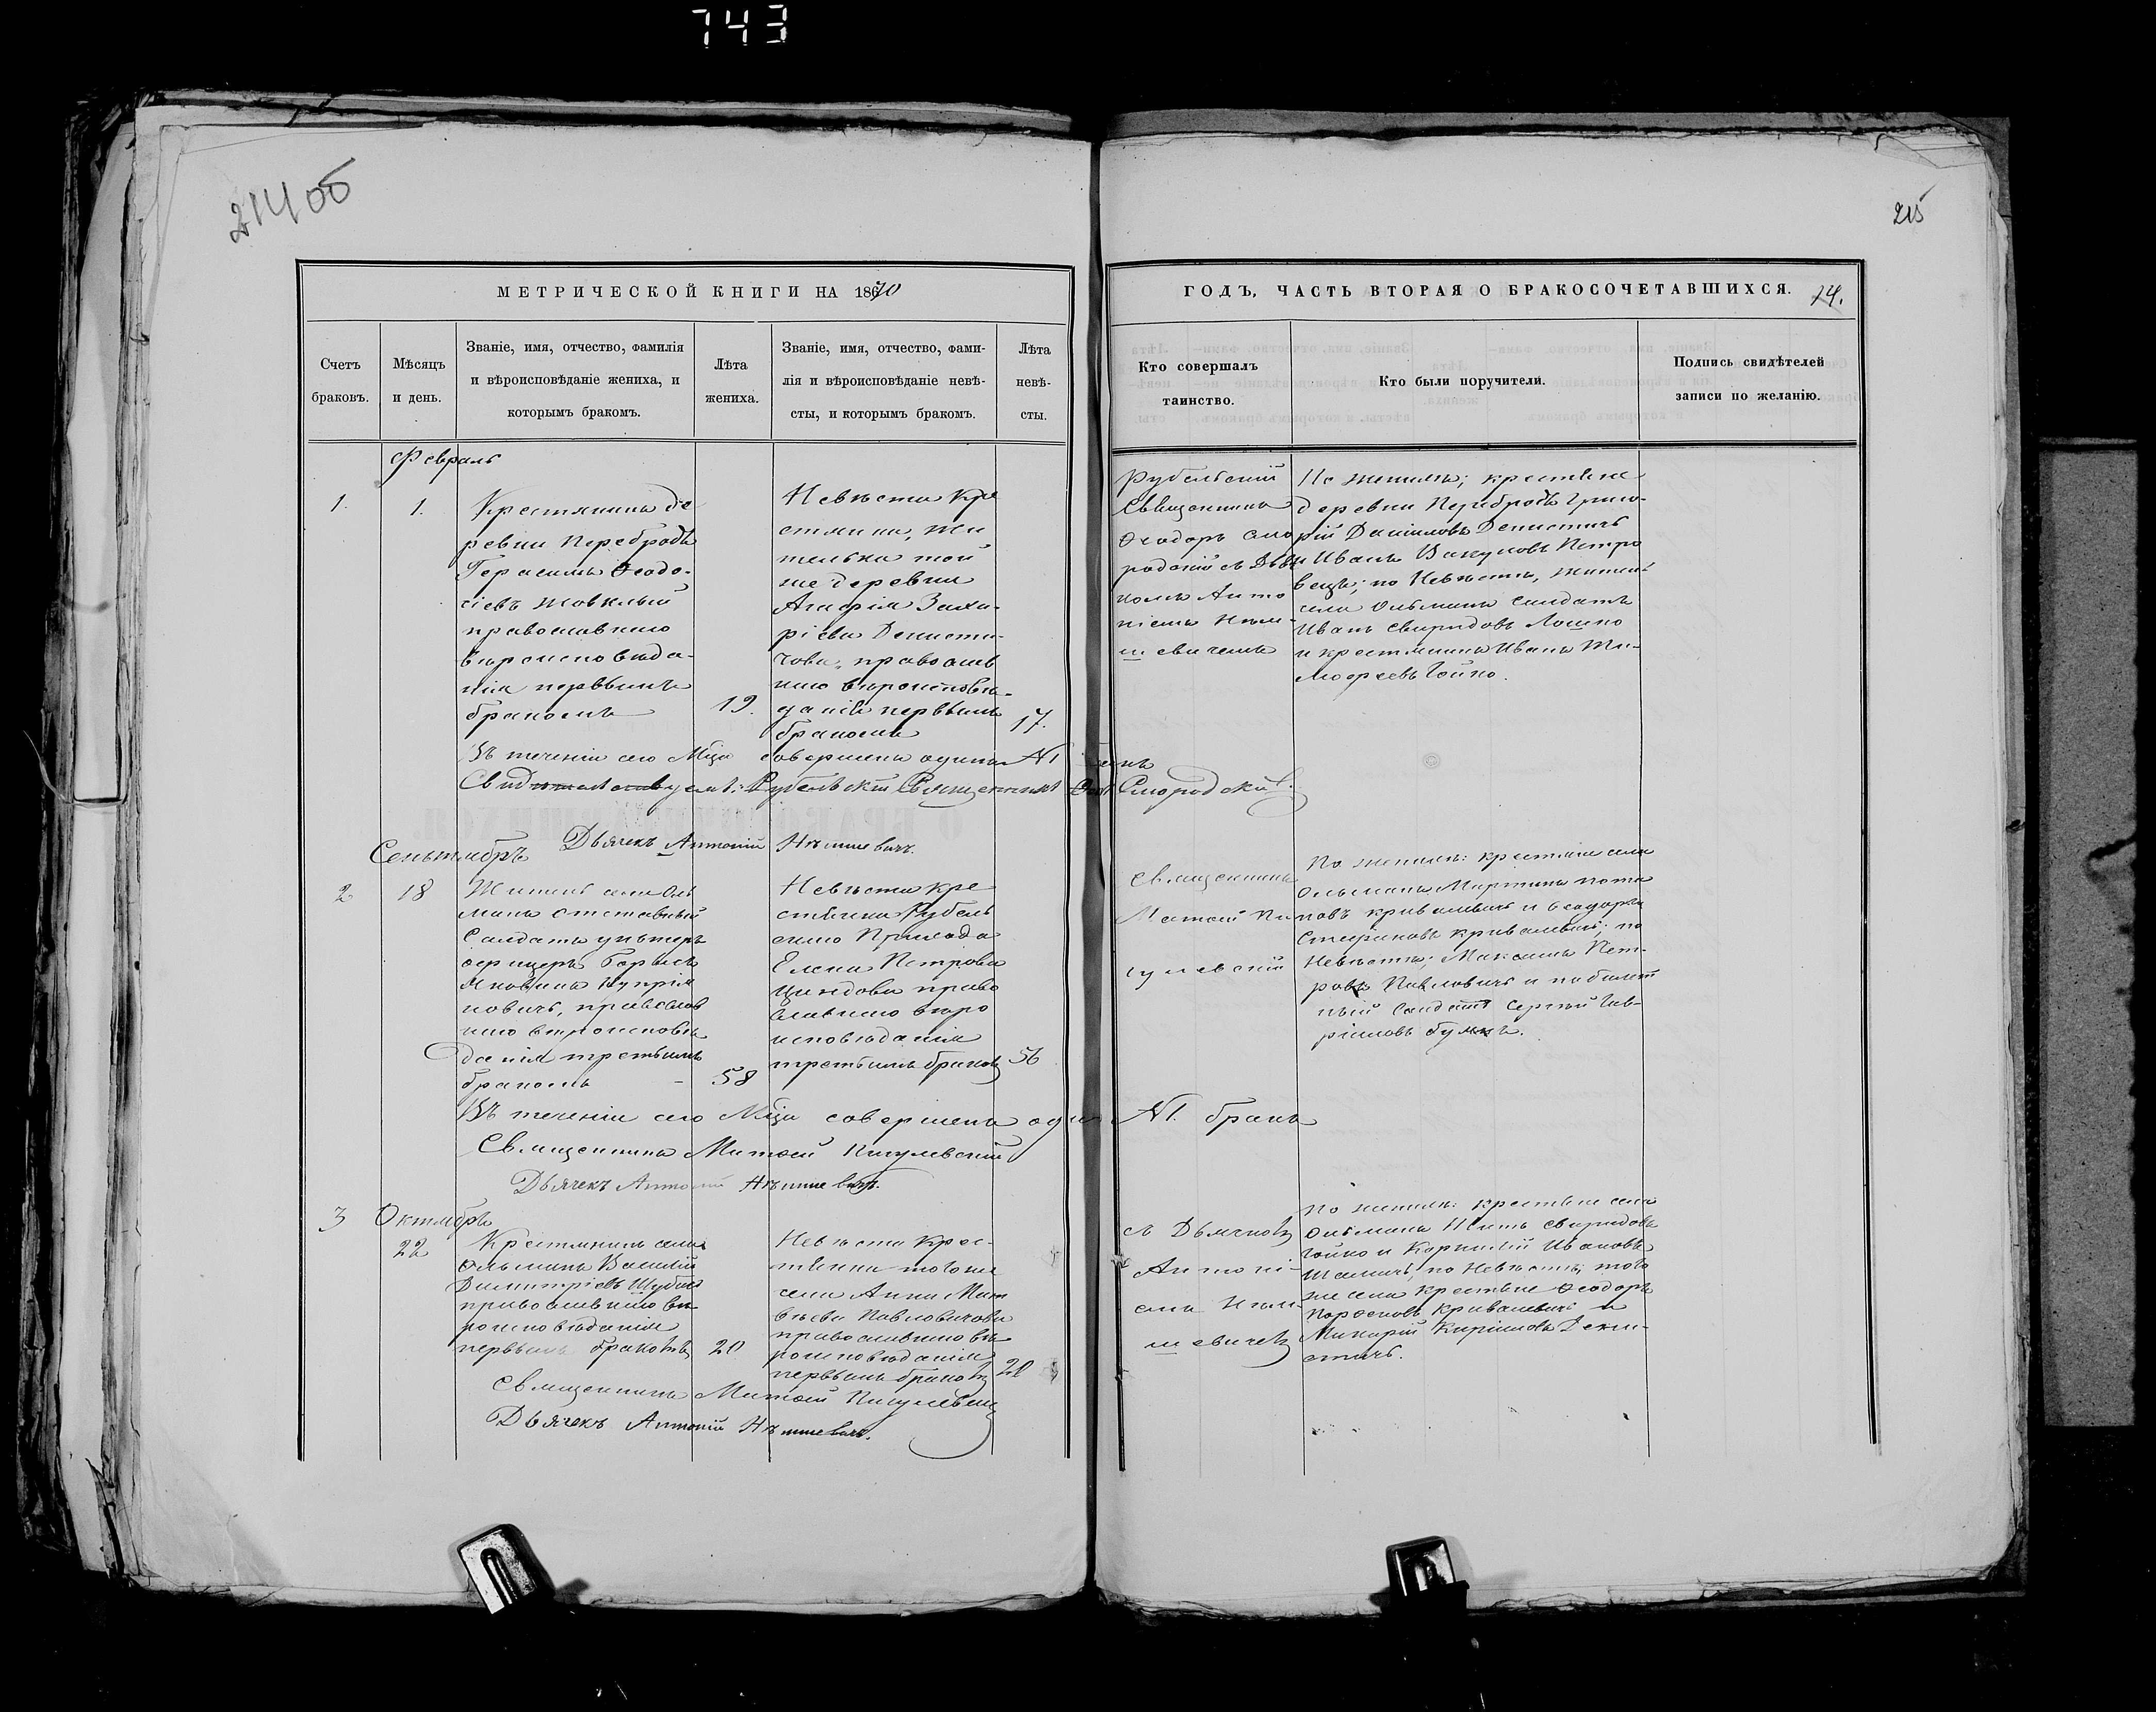 743
214 об
215
МЕТРИЧЕСКОЙ КНИГИ НА 1870
ГОДЪ, ЧАСТЬ ВТОРАЯ О БРАКОСОЧЕТАВШИХСЯ.
14.
Счетъ
браковъ.
Мѣсяцъ
и день.
Званіе, имя, отчество, фамилія
и вѣроисповѣданіе жениха, и
которымъ бракомъ.
Лѣта
жениха.
Званіе, имя, отчество, фами-
лія и вѣроисповѣданіе невѣ-
сты, и которымъ бракомъ.
Лѣта
невѣ-
сты.
Кто совершалъ
таинство.
Кто были поручители.
Подпись свидѣтелей
записи по желанію.
Февраль
1.
1.
Крестянинъ де
ревни Перебродъ
Герасимъ Ѳеодо-
сіевъ Жовклый
православного
вѣроисповѣда-
нія первымъ
бракомъ
19.
Невѣста кре
стянка, жи
телька той
же деревни
Агафія Заха-
ріева Денисти-
чова, православ
ного вѣроисповѣ-
данія первымъ
бракомъ
17.
Рубельскій
Священникъ
Ѳеодоръ Смо
родскій съ Дьяч
комъ Анто
ніемъ Нѣм-
шевичемъ
По женихѣ; крестяне
деревни Перебродъ Григо-
рій Даниловъ Денистичъ
и Иванъ Вакуловъ Петро
вецъ; по Невѣстѣ, жители
села Ольманъ Салдатъ
Иванъ Свиридовъ Лошко
и крестянинъ Иванъ Ти-
моѳеевъ Гойко.
Въ теченіи сего Мца совершенъ одинъ №1 бракъ
Свидѣтельствуемъ: Рубельскій Священникъ Ѳеод Смородскій.
Дьячекъ Антоній Нѣмшевичъ.
Сеньтябръ
2
18
Житель села Оль
манъ отставный
Салдатъ унътеръ
офицеръ Борисъ
Яковлевъ Купріа
новичъ, православ
ного вѣроисповѣ
данія третьимъ
бракомъ
58
Невѣста кре
стянка Рубель
ского Прихода
Елена Петрова
православного вѣро
исповѣданія
третьимъ браком
56
Священникъ
Матѳей Пи
гулевскій
По женихѣ: крестяне села
Ольманъ Мартинъ Пота
повъ Кривалевичъ и Ѳеодоръ
Стефановъ Кривалевичъ; по
Невѣстѣ; Максимъ Пет-
ровъ Павловичъ и побилет
ный Салдатъ Сергѣй Гав-
ріиловъ
Въ теченіи сего Мца совершенъ одинъ №1. бракъ
Священникъ Матѳей Пигулевскій
Дьячекъ Антоній Нѣмшевичъ.
3
Октябръ
22
Крестянинъ села
Ольманъ Василій
Димитріевъ Шубич
православного вѣ-
роисповѣданія
первымъ бракомъ
20
Невѣста крес-
тянка тогоже
села Анна Мат
вѣева Павловичова
православного вѣ
роисповѣданія
первымъ бракомъ
20
съ Дьячком
Антоні-
емъ Нѣм-
шевичем
По женихѣ: крестяне села
Ольманъ Игнатъ Свиридовъ
Гойко и Корнилій Ивановъ
по Невѣстѣ; того
же села крестяне Ѳеодоръ
Кривалевичъ и
Макарій Кириловъ Дени-
стичъ.
Священникъ Матѳей Пигулевскій
Дьячекъ Антоній Нѣмшевичъ.